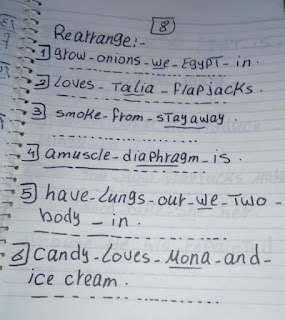 8
Rearrange:-
1 grow-onions-we-Egypt-in.
2 loves-Talia-flapjacks.
3 smoke-from-stay away.
4 amuscle-diaphragm-is.
5) have-Lungs-our-we-Two-
body-in.
6 candy-Loves-Mona-and-
ice cream.